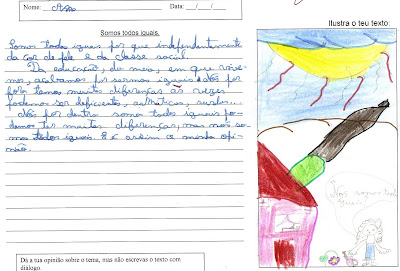 Nome: Ana Data: / /
Somos todos iguais.
Somos todos iguais por que independentemente
da cor de pele e da classe social.
Da educação, do meio, em que vive-
mos, acabamos por sermos iguais. Nós por
fora temos muitas diferenças às vezes
podemos ser deficientes, asmáticos, surdos...
Nós por dentro somos todos iguais po-
demos ter muitas diferenças, mas nós so-
mos todos iguais. E é assim a minha opi-
nião.
Dá a tua opinião sobre o tema, mas não escrevas o texto com
diálogo.
Ilustra o teu texto:
Nós somos todos
iguais